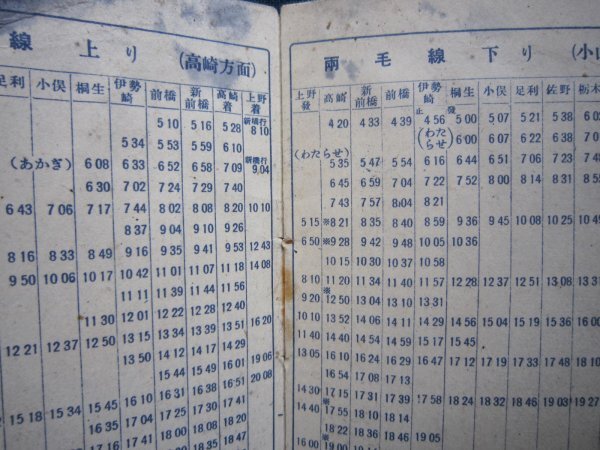 線 上り (高崎方面)
足利 小俣 桐生 伊勢崎 前橋 新前橋 高崎着 上野着
5 10 5 16 5 28 新橋行 8 10
5 34 5 53 5 59 6 10
(あかぎ) 6 08 6 33 6 52 6 58 7 09 新橋行 9 04
6 30 7 02 7 24 7 29 7 40
6 43 7 06 7 17 7 44 8 02 8 08 8 20 10 10
8 37 9 04 9 10 9 26
8 16 8 33 8 49 9 16 9 35 9 41 9 53 12 43
9 50 10 06 10 17 10 42 11 01 11 07 11 18 14 08
11 11 11 39 11 44 11 56
11 30 12 01 12 22 12 28 12 40
12 21 12 37 12 50 13 15 13 34 13 39 13 51 16 20
13 50 14 12 14 17 14 29
15 44 15 49 16 01 19 06
15 18 15 34 15 45 16 10 16 31 16 38 16 51 20 08
16 35 17 04 17 25 17 30 17 41
17 16 17 41 18 00 18 08 18 20
18 47
両毛線 下り (小山
上野發 高崎 新前橋 前橋 伊勢崎 桐生 小俣 足利 佐野 栃木
4 20 4 33 4 39 止 4 56 發 5 00 5 07 5 21 5 38 6 02
(わたらせ) 6 00 6 07 6 22 6 38 7 0
(わたらせ) 5 35 5 47 5 54 6 16 6 44 6 51 7 06 7 23 7 48
6 45 6 59 7 04 7 22 7 52 8 00 8 14 8 31 8 55
7 43 7 57 8 04 8 21
5 15 ※8 21 8 35 8 40 8 59 9 36 9 45 10 08 10 25 10 49
6 50 ※9 28 9 42 9 48 10 05 10 36
10 15 10 30 10 37 10 58
8 10 11 20 11 34 11 40 11 57 12 28 12 37 12 51 13 08 13 31
9 20 ※12 50 13 04 13 10 13 31
10 10 13 52 14 06 14 11 14 29 14 56 15 04 15 19 15 36 16 00
11 40 14 40 14 54 14 59 15 17 15 45
13 05 16 10 16 24 16 29 16 47 17 12 17 19 17 33 17 48 18 10
16 54 17 08 17 13
14 30 17 15 17 31 17 39 17 58 18 24 18 32 18 46 19 03 19 27
14 40 17 55 18 10 18 14
※18 22 18 36 18 46 19 05
16 00 ※19 00